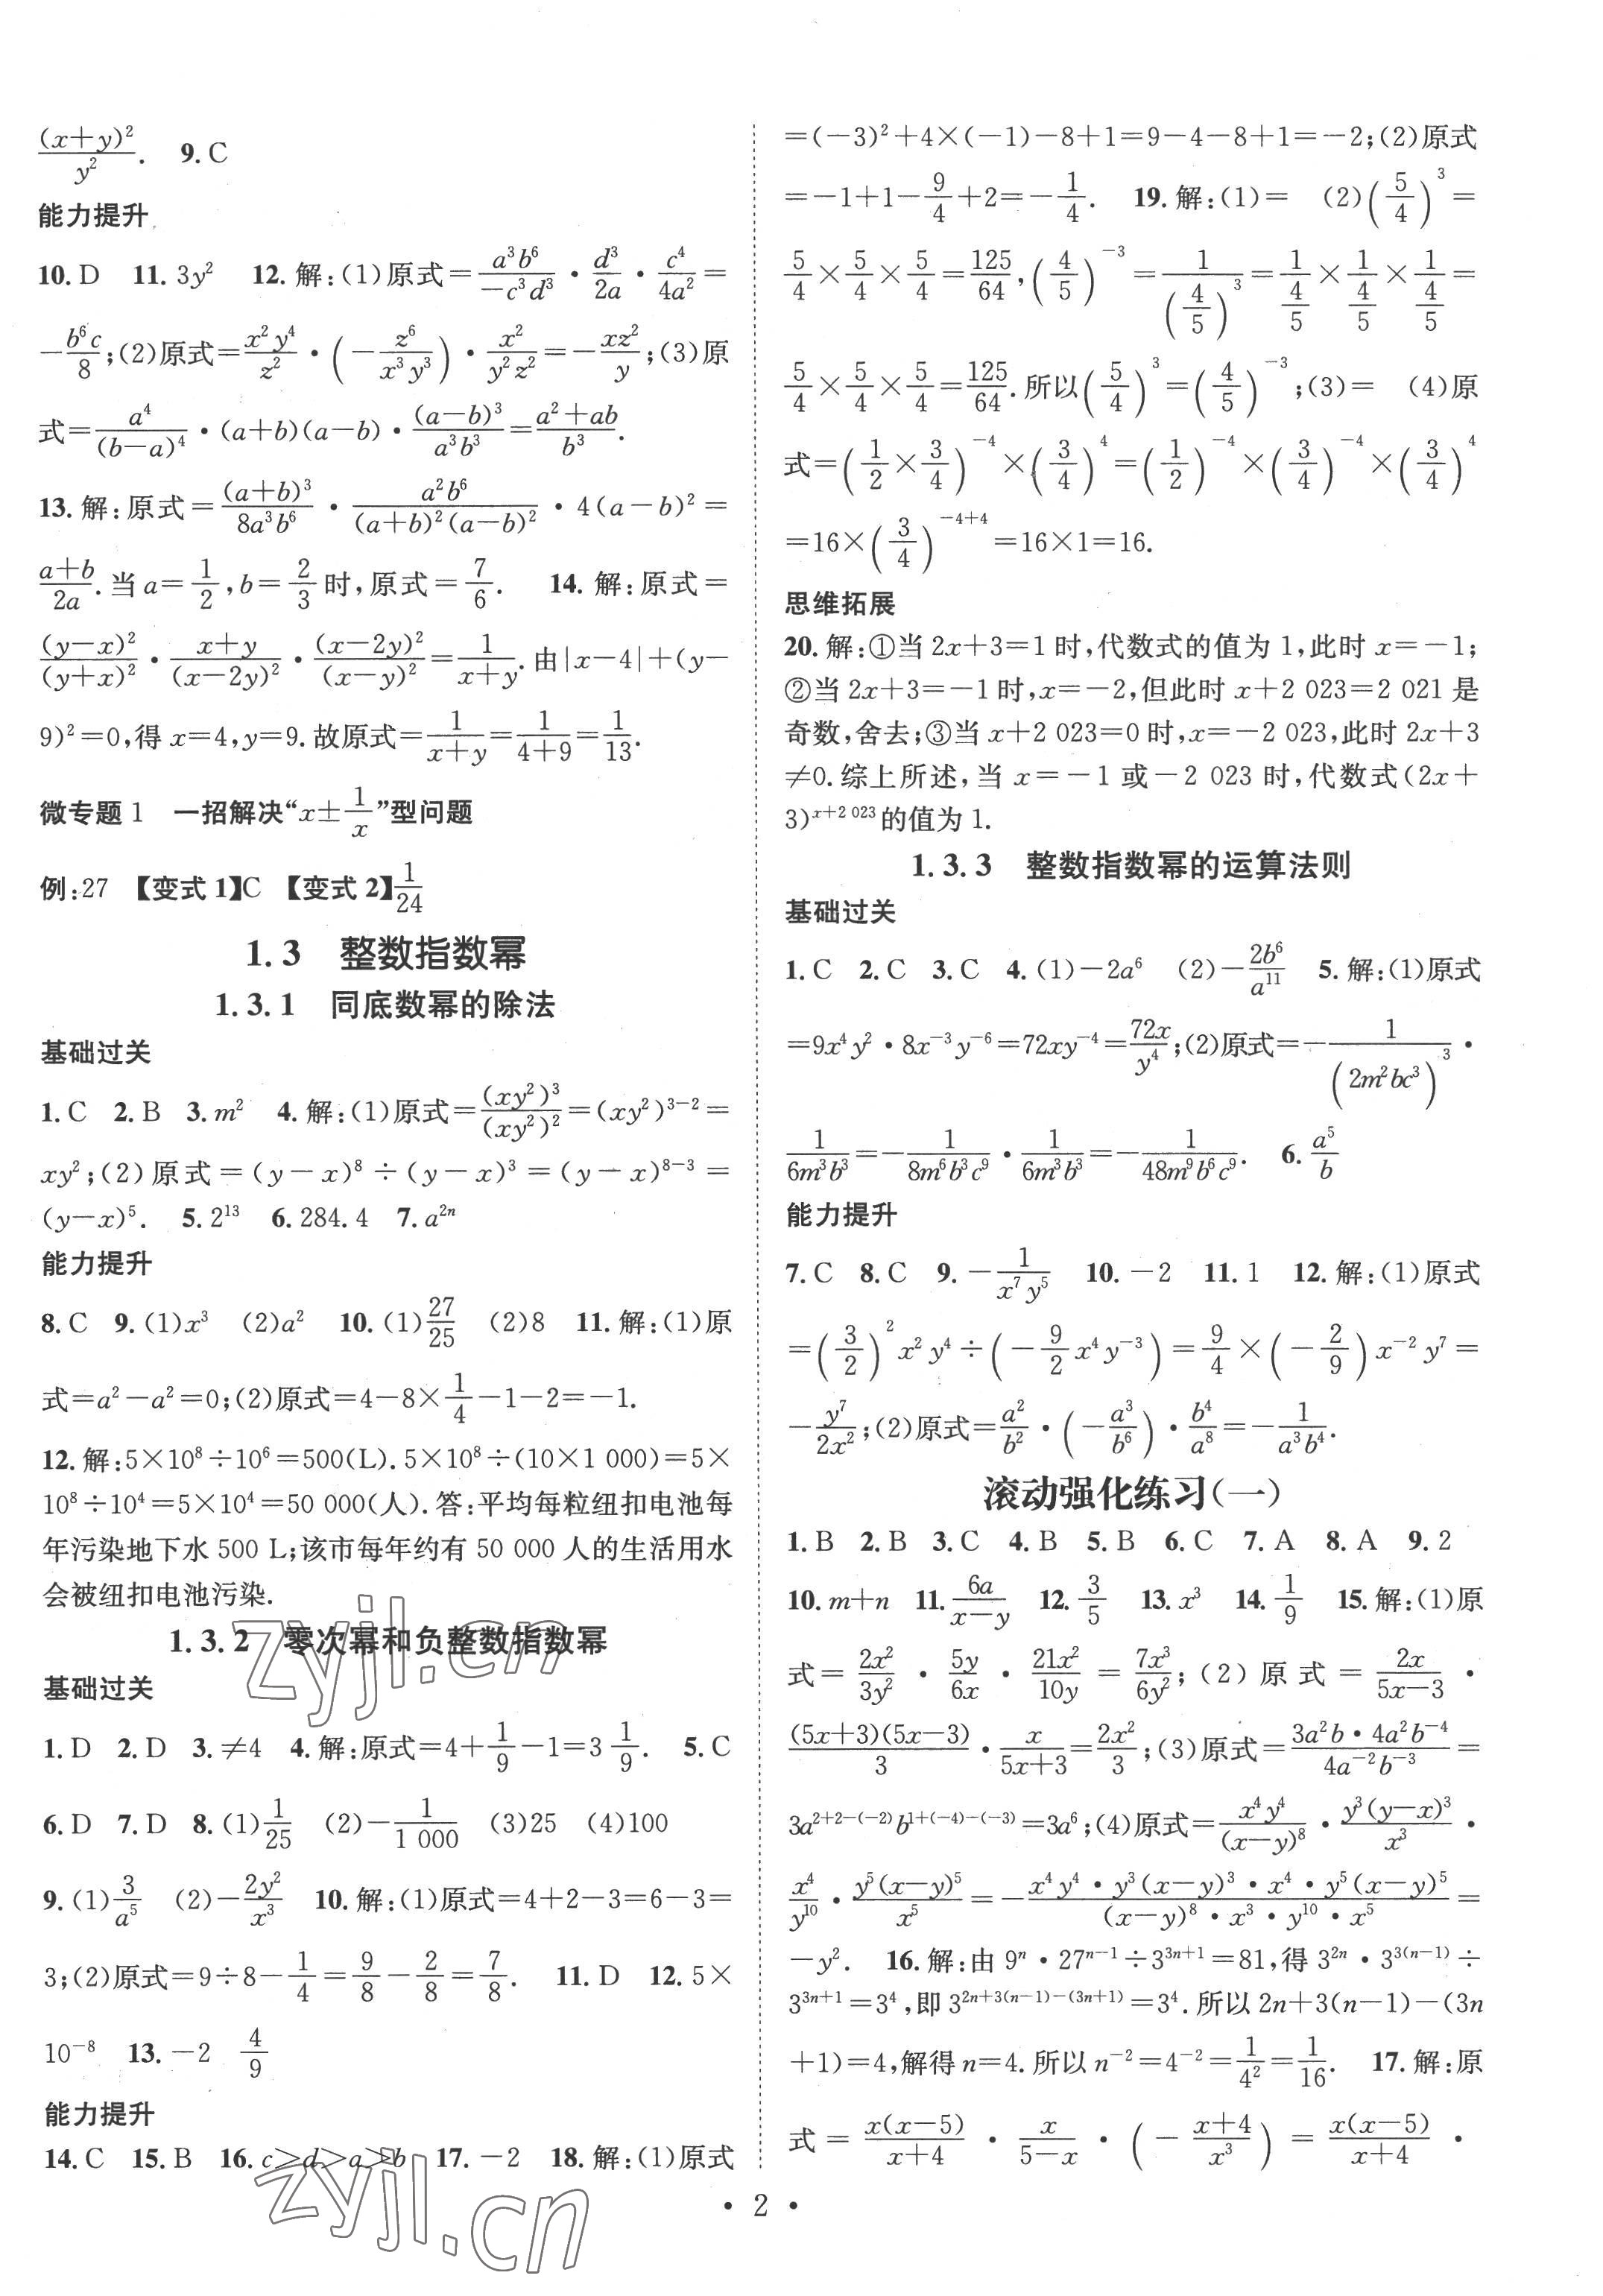 (x+y)²/y². 9.C
能力提升
10.D 11.3y² 12.解:(1)原式=a³b⁶/(-c³d³)·d³/2a·c⁴/4a²=
-b⁶c/8;(2)原式=x²y⁴/z²·(-z⁶/x³y³)·x²/y²z²=-xz²/y;(3)原
式=a⁴/(b-a)⁴·(a+b)(a-b)·(a-b)³/a³b³=(a²+ab)/b³.
13.解:原式=(a+b)³/8a³b⁶·a²b⁶/(a+b)²(a-b)²·4(a-b)²=
(a+b)/2a.当a=1/2,b=2/3时,原式=7/6. 14.解:原式=
(y-x)²/(y+x)²·(x+y)/(x-2y)²·(x-2y)²/(x-y)²=1/(x+y).由|x-4|+(y-
9)²=0,得x=4,y=9.故原式=1/(x+y)=1/(4+9)=1/13.
微专题1 一招解决“x±1/x”型问题
例:27 【变式1】C 【变式2】1/24
1.3 整数指数幂
1.3.1 同底数幂的除法
基础过关
1.C 2.B 3.m² 4.解:(1)原式=(xy²)³/(xy²)²=(xy²)³⁻²=
xy²;(2)原式=(y-x)⁸÷(y-x)³=(y-x)⁸⁻³=
(y-x)⁵. 5.2¹³ 6.284.4 7.a²ⁿ
能力提升
8.C 9.(1)x³ (2)a² 10.(1)27/25 (2)8 11.解:(1)原
式=a²-a²=0;(2)原式=4-8×1/4-1-2=-1.
12.解:5×10⁸÷10⁶=500(L).5×10⁸÷(10×1 000)=5×
10⁸÷10⁴=5×10⁴=50 000(人).答:平均每粒纽扣电池每
年污染地下水500 L;该市每年约有50 000人的生活用水
会被纽扣电池污染.
1.3.2 零次幂和负整数指数幂
基础过关
1.D 2.D 3.≠4 4.解:原式=4+1/9-1=3 1/9. 5.C
6.D 7.D 8.(1)1/25 (2)-1/1 000 (3)25 (4)100
9.(1)3/a⁵ (2)-2y²/x³ 10.解:(1)原式=4+2-3=6-3=
3;(2)原式=9÷8-1/4=9/8-2/8=7/8. 11.D 12.5×
10⁻⁸ 13.-2 4/9
能力提升
14.C 15.B 16.c>d>a>b 17.-2 18.解:(1)原式
=(-3)²+4×(-1)-8+1=9-4-8+1=-2;(2)原式
=-1+1-9/4+2=-1/4. 19.解:(1)= (2)(5/4)³=
5/4×5/4×5/4=125/64,(4/5)⁻³=1/(4/5)³=1/(4/5)×1/(4/5)×1/(4/5)=
5/4×5/4×5/4=125/64.所以(5/4)³=(4/5)⁻³;(3)= (4)原
式=(1/2×3/4)⁻⁴×(3/4)⁴=(1/2)⁻⁴×(3/4)⁻⁴×(3/4)⁴
=16×(3/4)⁻⁴⁺⁴=16×1=16.
思维拓展
20.解:①当2x+3=1时,代数式的值为1,此时x=-1;
②当2x+3=-1时,x=-2,但此时x+2 023=2 021是
奇数,舍去;③当x+2 023=0时,x=-2 023,此时2x+3
≠0.综上所述,当x=-1或-2 023时,代数式(2x+
3)^(x+2 023)的值为1.
1.3.3 整数指数幂的运算法则
基础过关
1.C 2.C 3.C 4.(1)-2a⁶ (2)-2b⁶/a¹¹ 5.解:(1)原式
=9x⁴y²·8x⁻³y⁻⁶=72xy⁻⁴=72x/y⁴;(2)原式=-1/(2m²bc³)³·
1/6m³b³=-1/8m⁶b³c⁹·1/6m³b³=-1/48m⁹b⁶c⁹. 6.a⁵/b
能力提升
7.C 8.C 9.-1/x⁷y⁵ 10.-2 11.1 12.解:(1)原式
=(3/2)²x²y⁴÷(-9/2x⁴y⁻³)=9/4×(-2/9)x⁻²y⁷=
-y⁷/2x²;(2)原式=a²/b²·(-a³/b⁶)·b⁴/a⁸=-1/a³b⁴.
滚动强化练习(一)
1.B 2.B 3.C 4.B 5.B 6.C 7.A 8.A 9.2
10.m+n 11.6a/(x-y) 12.3/5 13.x³ 14.1/9 15.解:(1)原
式=2x²/3y²·5y/6x·21x²/10y=7x³/6y²;(2)原式=2x/(5x-3)·
(5x+3)(5x-3)/3·x/(5x+3)=2x²/3;(3)原式=3a²b·4a²b⁻⁴/4a⁻²b⁻³=
3a^(2+2-(-2))b^(1+(-4)-(-3))=3a⁶;(4)原式=x⁴y⁴/(x-y)⁸·y³(y-x)³/x³·
x⁴/y¹⁰·y⁵(x-y)⁵/x⁵=-x⁴y⁴·y³(x-y)³·x⁴·y⁵(x-y)⁵/(x-y)⁸·x³·y¹⁰·x⁵=
-y². 16.解:由9ⁿ·27ⁿ⁻¹÷3³ⁿ⁺¹=81,得3²ⁿ·3^(3(n-1))÷
3³ⁿ⁺¹=3⁴,即3^(2n+3(n-1)-(3n+1))=3⁴.所以2n+3(n-1)-(3n
+1)=4,解得n=4.所以n⁻²=4⁻²=1/4²=1/16. 17.解:原
式=x(x-5)/(x+4)·x/(5-x)·(-(x+4)/x³)=x(x-5)/(x+4)·
·2·
zyjl.cn
zyjl.cn